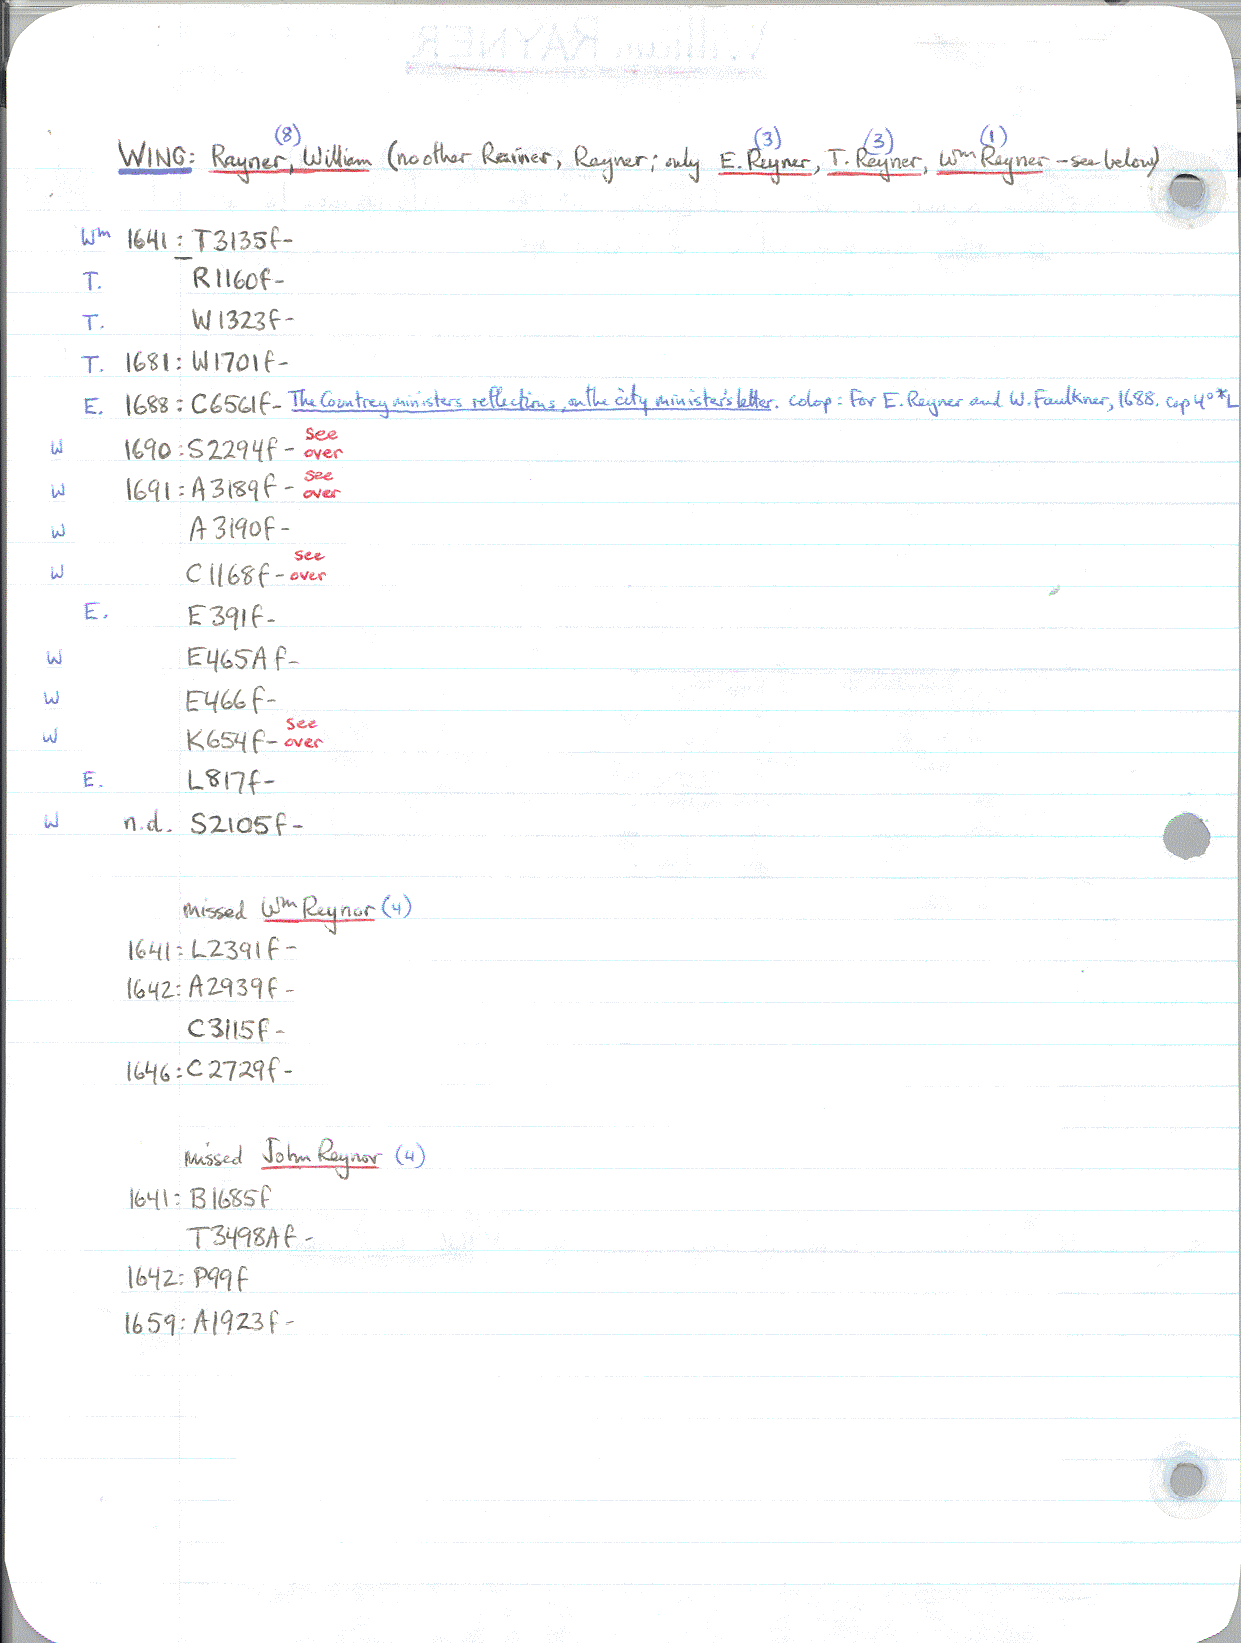 (8) (3) (3) (1)
WING: Rayner, William (no other Rainer, Rayner; only E. Reyner, T. Reyner, Wm Reyner - see below)
Wm 1641: T3135f-
T. R1160f-
T. W1323f-
T. 1681: W1701f-
E. 1688: C6561f- The Countrey ministers reflections, on the city ministers letter. colop: For E. Reyner and W. Faulkner, 1688. cap 4° *L
W 1690: S2294f- see over
W 1691: A3189f- see over
W A3190f-
W C1168f- see over
E. E391f-
W E465Af-
W E466f-
W K654f- see over
E. L817f-
W n.d. S2105f-
missed Wm Reynor (4)
1641: L2391f-
1642: A2939f-
C3115f-
1646: C2729f-
missed John Reynor (4)
1641: B1685f
T3498Af-
1642: P99f
1659: A1923f-